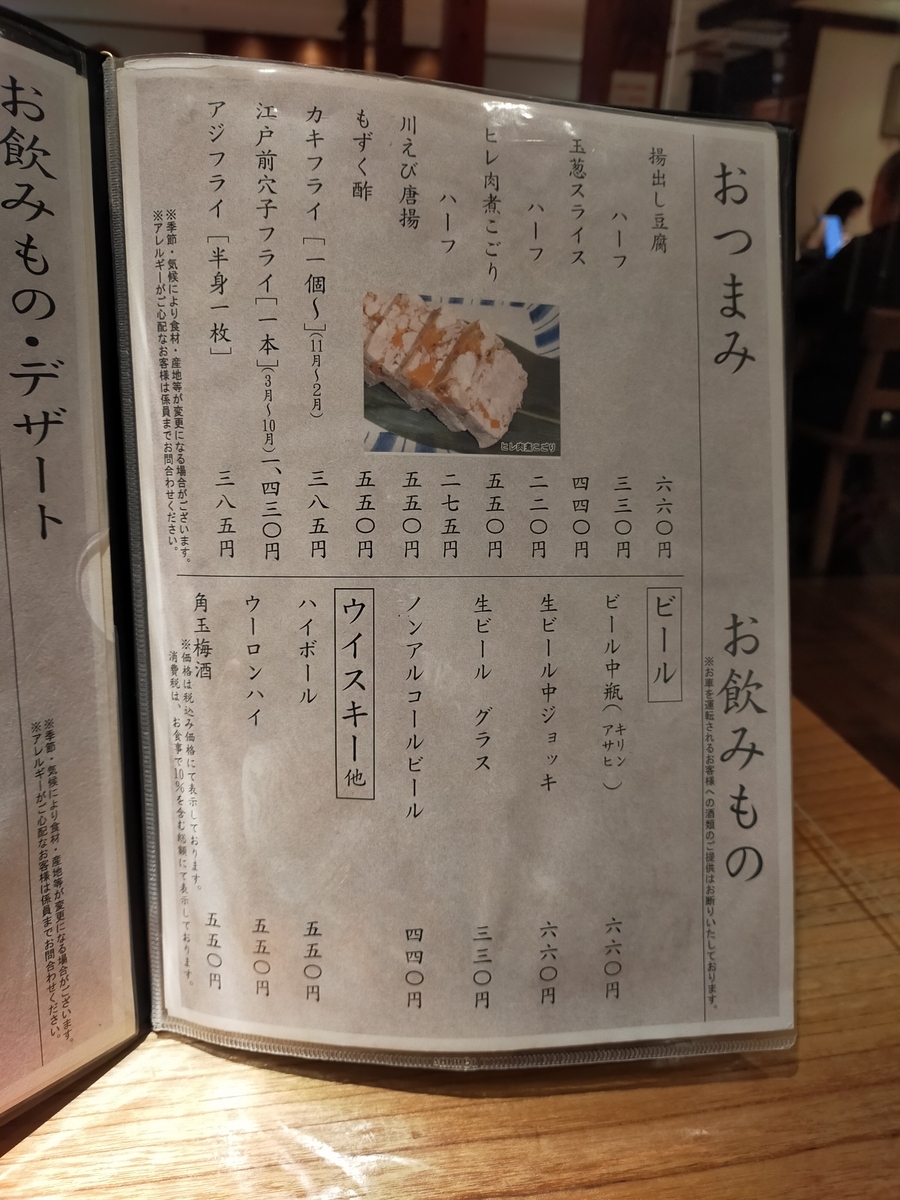 おつまみ
揚出し豆腐 六六〇円
ハーフ 三三〇円
玉葱スライス 四四〇円
ハーフ 二二〇円
ヒレ肉煮こごり 五五〇円
ハーフ 二七五円
川えび唐揚 五五〇円
もずく酢 五五〇円
カキフライ［一個〜］（11月〜2月） 三八五円
江戸前穴子フライ［一本］（3月〜10月） 一、四三〇円
アジフライ［半身一枚］ 三八五円
※季節・気候により食材・産地等が変更になる場合がございます。
※アレルギーがご心配なお客様は係員までお問合わせください。
ヒレ肉煮こごり
お飲みもの
※お車を運転されるお客様への酒類のご提供はお断りいたしております。
ビール
ビール中瓶（キリン アサヒ） 六六〇円
生ビール中ジョッキ 六六〇円
生ビール グラス 三三〇円
ノンアルコールビール 四四〇円
ウイスキー他
ハイボール 五五〇円
ウーロンハイ 五五〇円
角玉梅酒 五五〇円
※価格は税込み価格にて表示しております。
消費税は、お食事で10％を含む総額にて表示しております。
お飲みもの・デザート
※季節・気候により食材・産地等が変更になる場合がございます。
※アレルギーがご心配なお客様は係員までお問合わせください。